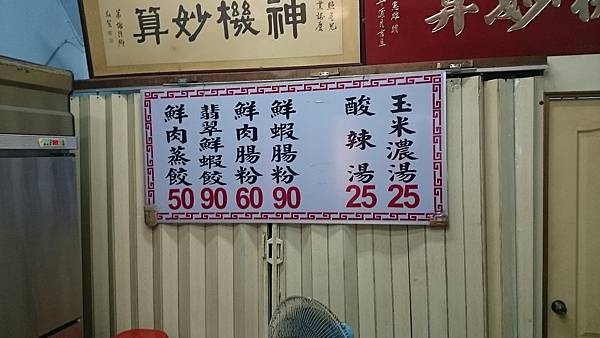 神機妙算
玉米濃湯 25
酸辣湯 25
鮮蝦腸粉 90
鮮肉腸粉 60
翡翠鮮蝦餃 90
鮮肉蒸餃 50